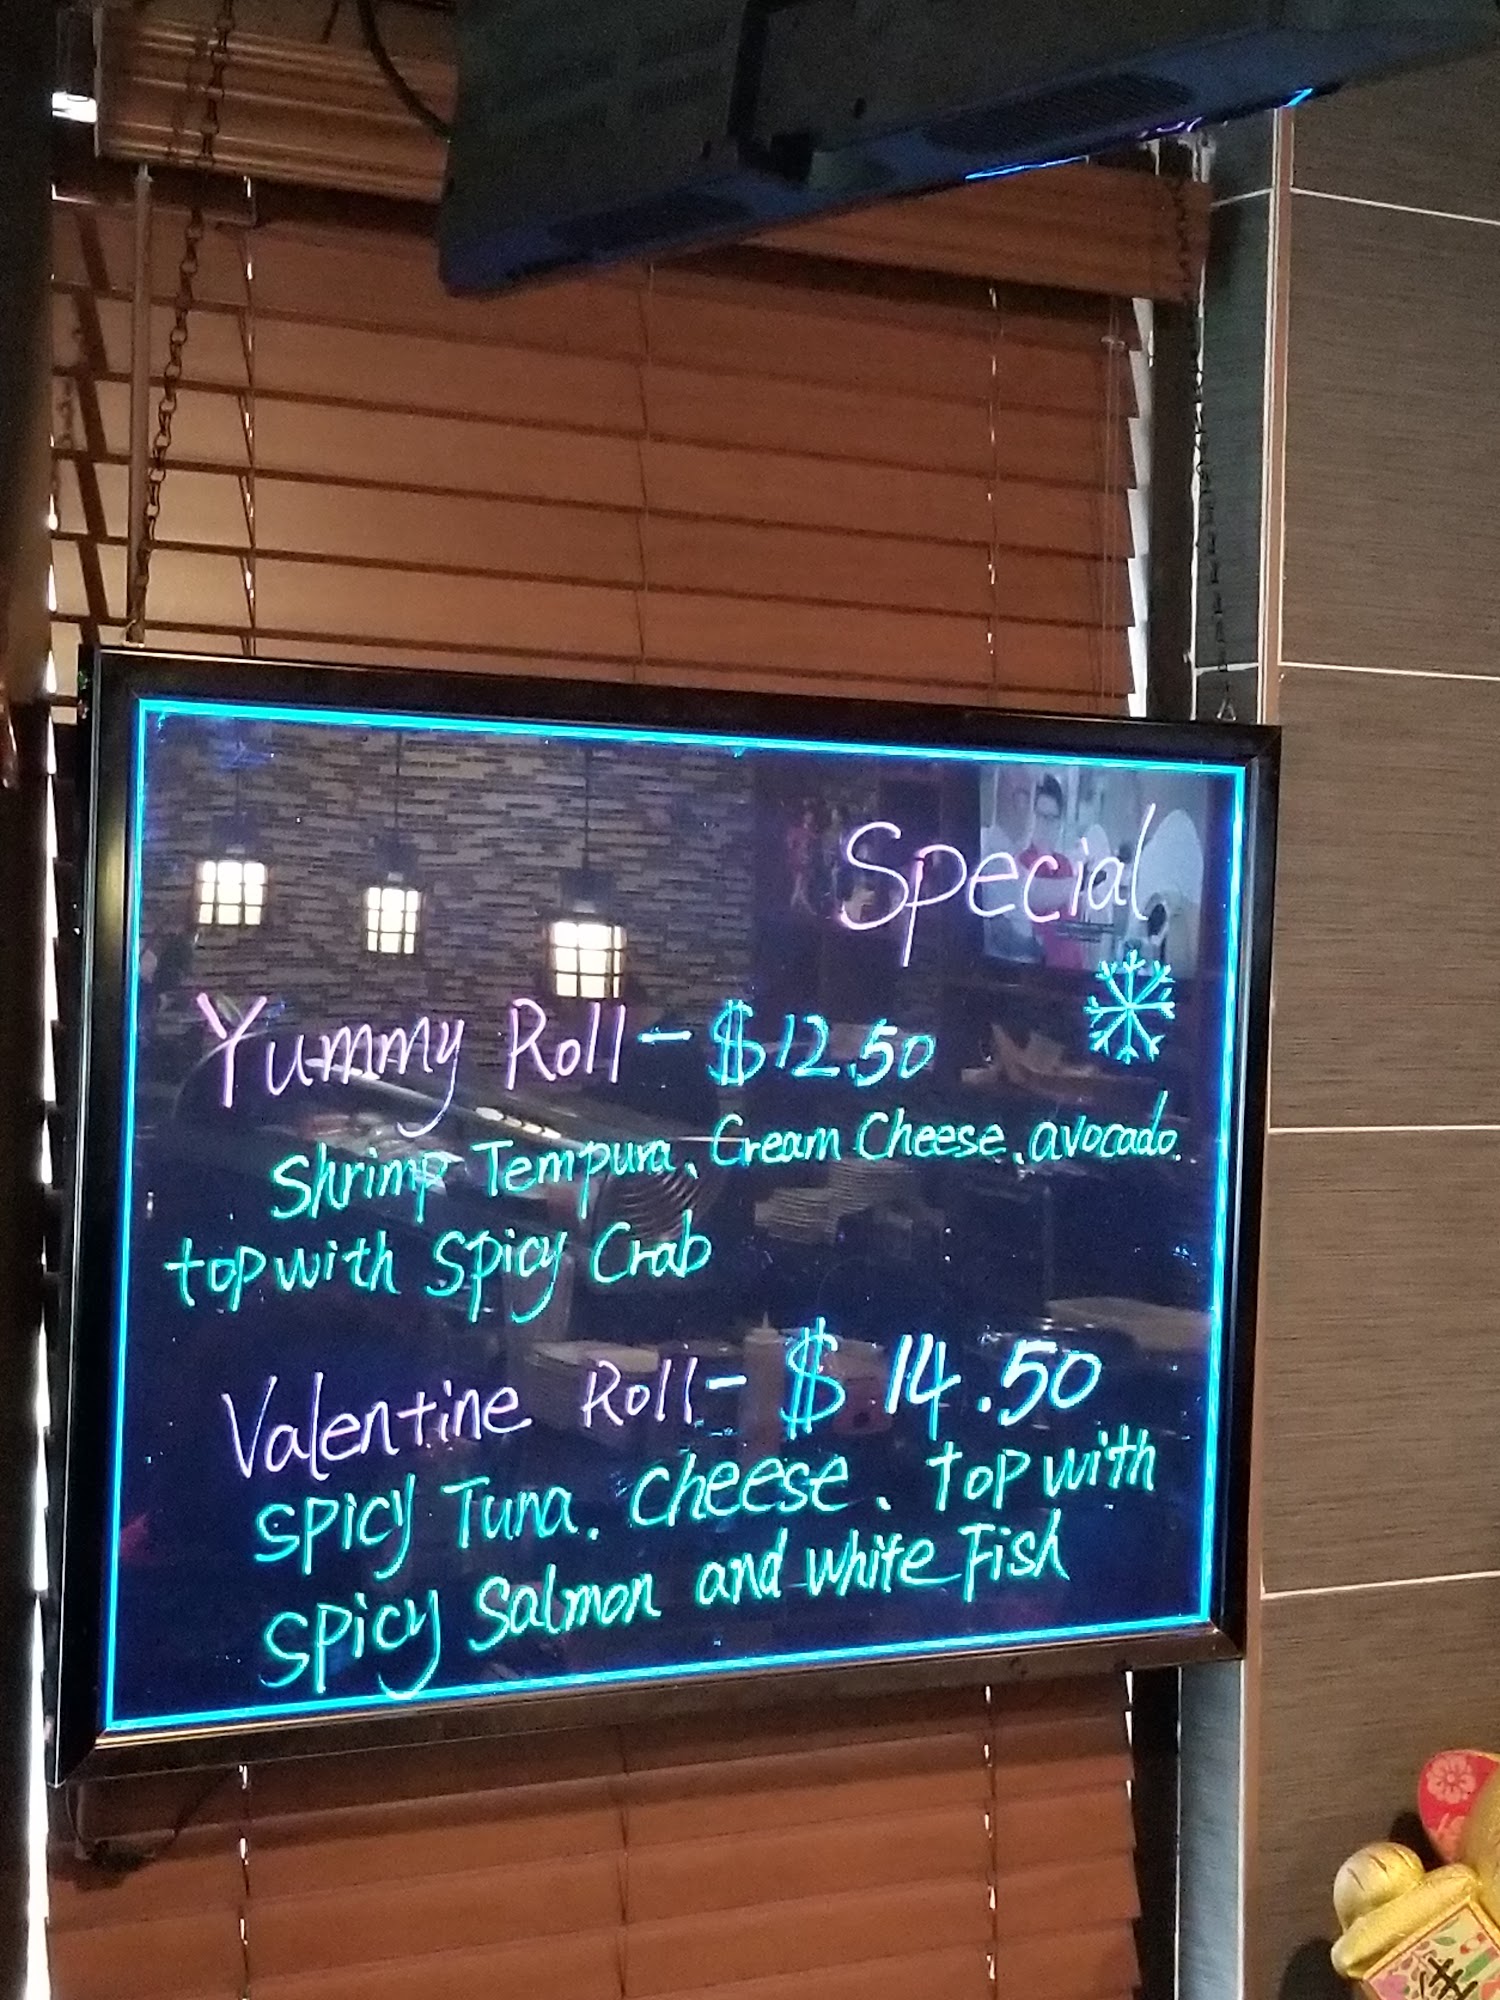 Special
Yummy Roll - $12.50
Shrimp Tempura, Cream Cheese, avocado.
top with Spicy Crab
Valentine Roll - $14.50
Spicy Tuna. Cheese. Top with
Spicy Salmon and white Fish